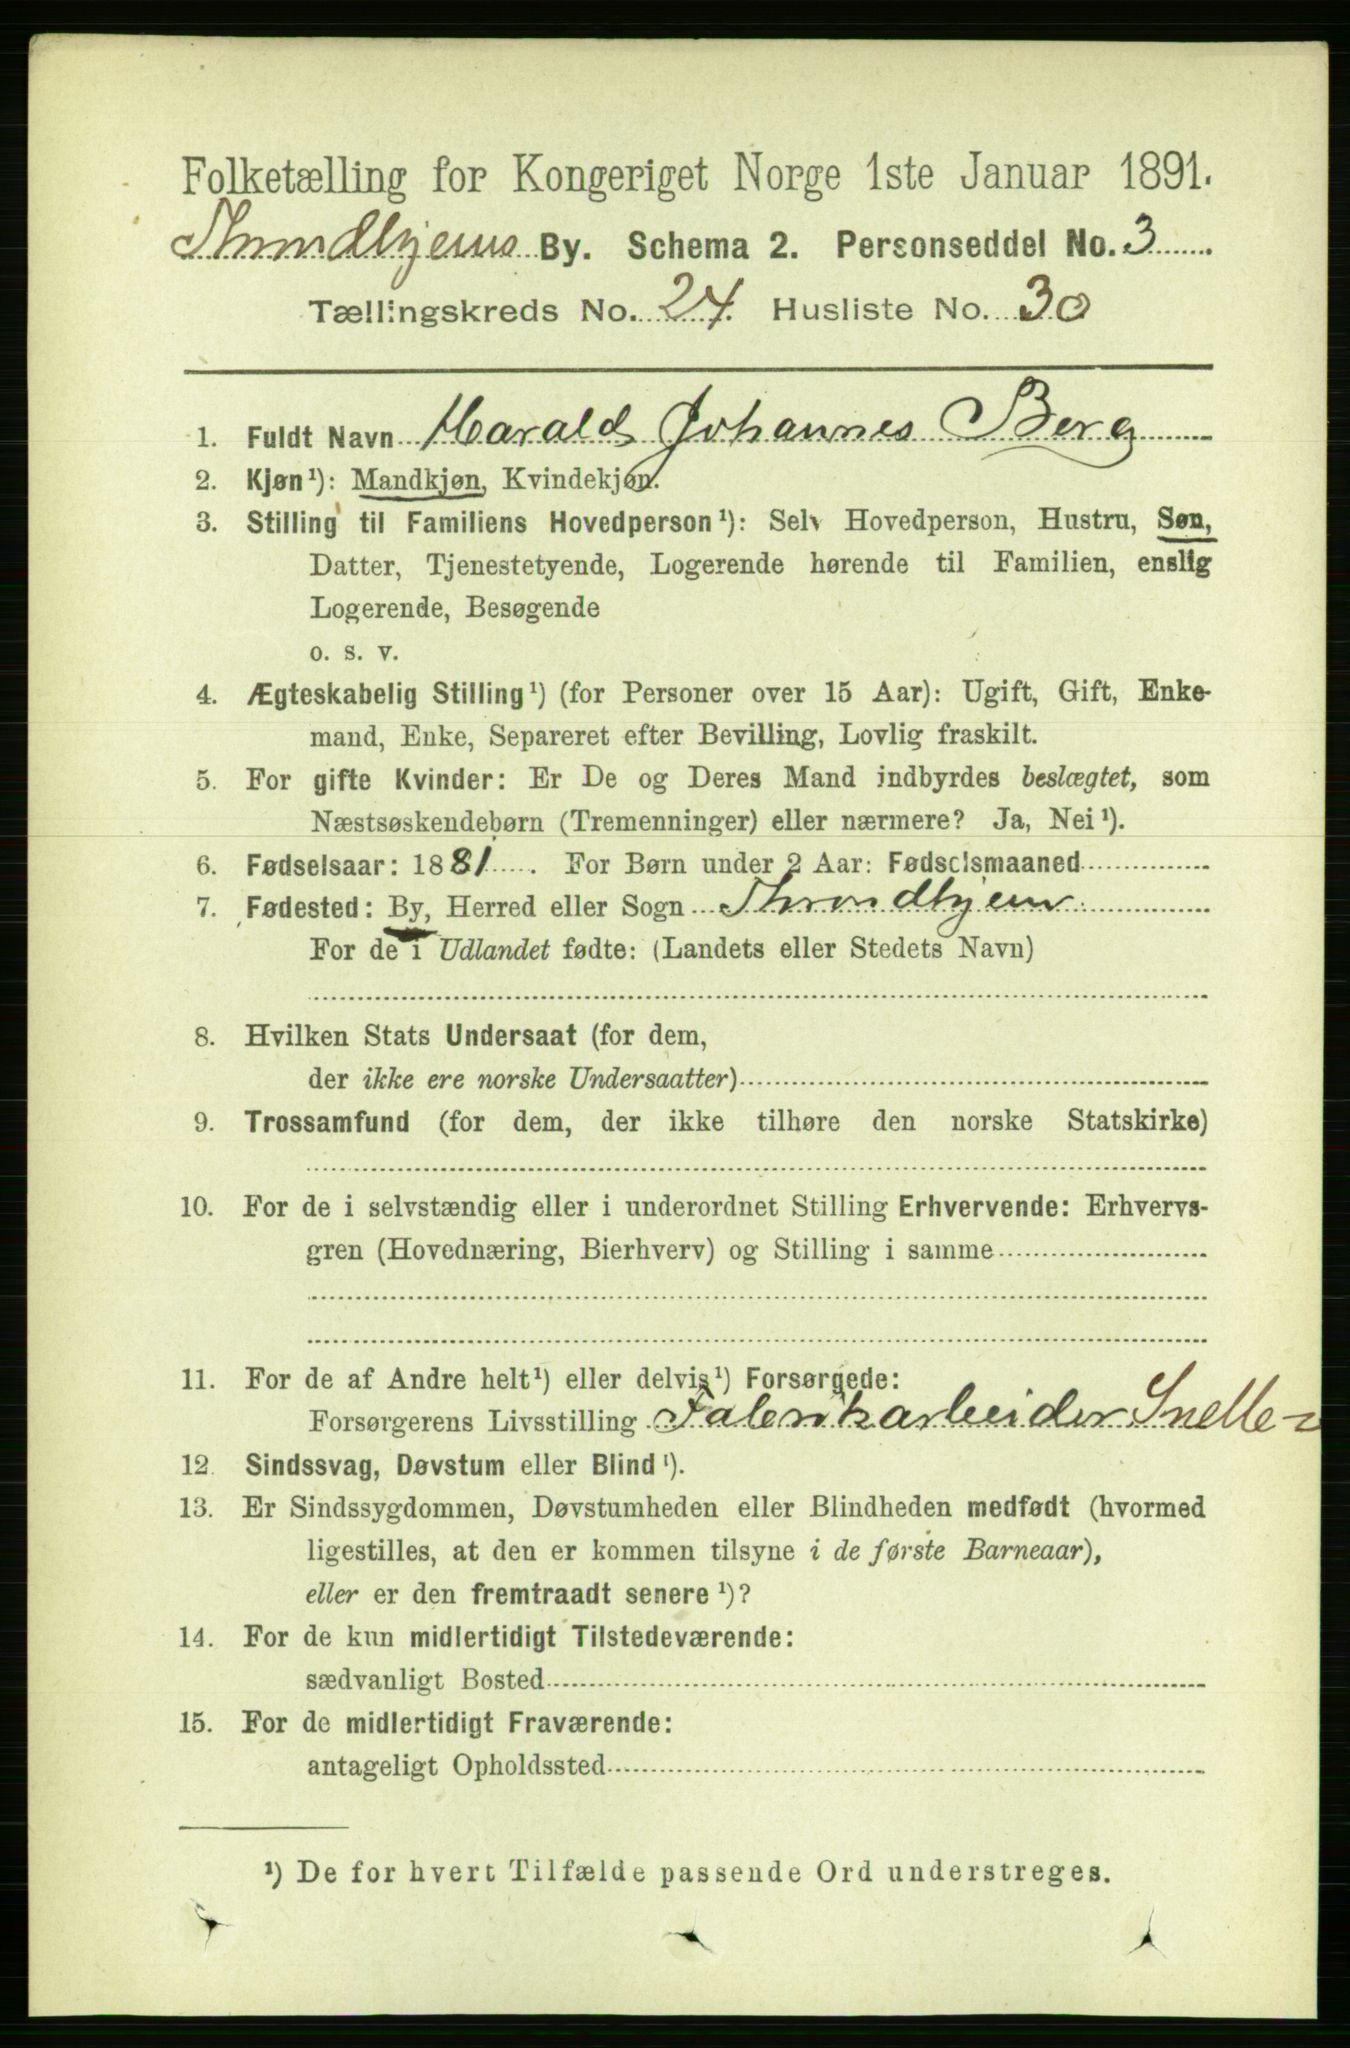 Folketælling for Kongeriget Norge 1ste Januar 1891.
Throndhjems By. Schema 2. Personseddel No. 3
Tællingskreds No. 24. Husliste No. 30
1. Fuldt Navn Harald Johannes Berg
2. Kjøn¹): Mandkjøn, Kvindekjøn.
3. Stilling til Familiens Hovedperson¹): Selv Hovedperson, Hustru, Søn,
Datter, Tjenestetyende, Logerende hørende til Familien, enslig
Logerende, Besøgende
o. s. v.
4. Ægteskabelig Stilling¹) (for Personer over 15 Aar): Ugift, Gift, Enke-
mand, Enke, Separeret efter Bevilling, Lovlig fraskilt.
5. For gifte Kvinder: Er De og Deres Mand indbyrdes beslægtet, som
Næstsøskendebørn (Tremenninger) eller nærmere? Ja, Nei¹).
6. Fødselsaar: 1881. For Børn under 2 Aar: Fødselsmaaned
7. Fødested: By, Herred eller Sogn Throndhjem
For de i Udlandet fødte: (Landets eller Stedets Navn)
8. Hvilken Stats Undersaat (for dem,
der ikke ere norske Undersaatter)
9. Trossamfund (for dem, der ikke tilhøre den norske Statskirke)
10. For de i selvstændig eller i underordnet Stilling Erhvervende: Erhvervs-
gren (Hovednæring, Bierhverv) og Stilling i samme
11. For de af Andre helt¹) eller delvis¹) Forsørgede:
Forsørgerens Livsstilling Fabrikarbeider
12. Sindssvag, Døvstum eller Blind¹).
13. Er Sindssygdommen, Døvstumheden eller Blindheden medfødt (hvormed
ligestilles, at den er kommen tilsyne i de første Barneaar),
eller er den fremtraadt senere¹)?
14. For de kun midlertidigt Tilstedeværende:
sædvanligt Bosted
15. For de midlertidigt Fraværende:
antageligt Opholdssted
¹) De for hvert Tilfælde passende Ord understreges.